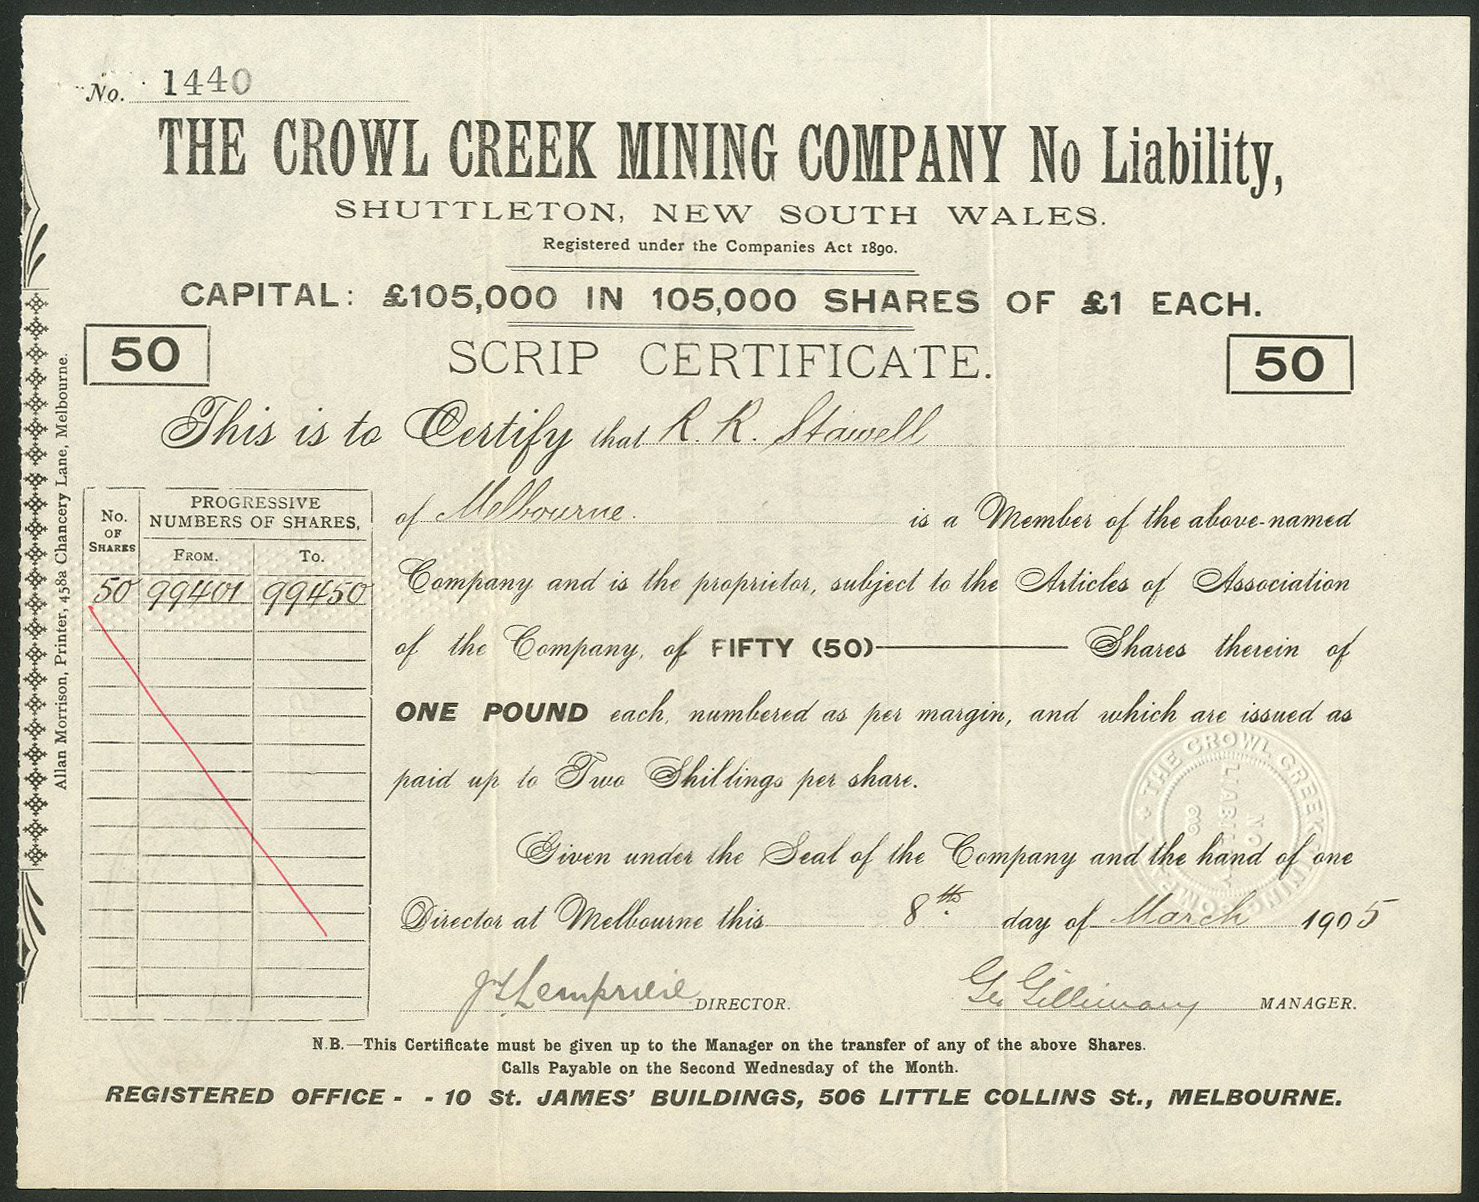 No. 1440
THE CROWL CREEK MINING COMPANY No Liability,
SHUTTLETON, NEW SOUTH WALES.
Registered under the Companies Act 1890.
CAPITAL: £105,000 IN 105,000 SHARES OF £1 EACH.
50 SCRIP CERTIFICATE. 50
This is to Certify that R. R. Stawell
of Melbourne. is a Member of the above-named
Company and is the proprietor, subject to the Articles of Association
of the Company, of FIFTY (50) Shares therein of
ONE POUND each, numbered as per margin, and which are issued as
paid up to Two Shillings per share.
Given under the Seal of the Company and the hand of one
Director at Melbourne this 8th day of March 1905
DIRECTOR. MANAGER.
No. OF SHARES
PROGRESSIVE NUMBERS OF SHARES,
FROM. TO.
50 99401 99450
THE CROWL CREEK MINING COMPANY
NO LIABILITY
N.B.—This Certificate must be given up to the Manager on the transfer of any of the above Shares.
Calls Payable on the Second Wednesday of the Month.
REGISTERED OFFICE - - 10 St. JAMES' BUILDINGS, 506 LITTLE COLLINS St., MELBOURNE.
Allan Morrison, Printer, 458a Chancery Lane, Melbourne.